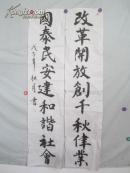 改革開放創千秋偉業
國泰民安建和諧社會
戊子年
書